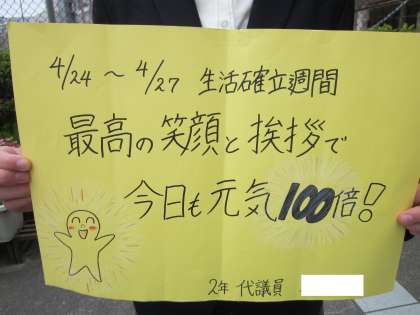 4/24 ～ 4/27 生活確立週間
最高の笑顔と挨拶で
今日も元気100倍!
2年 代議員